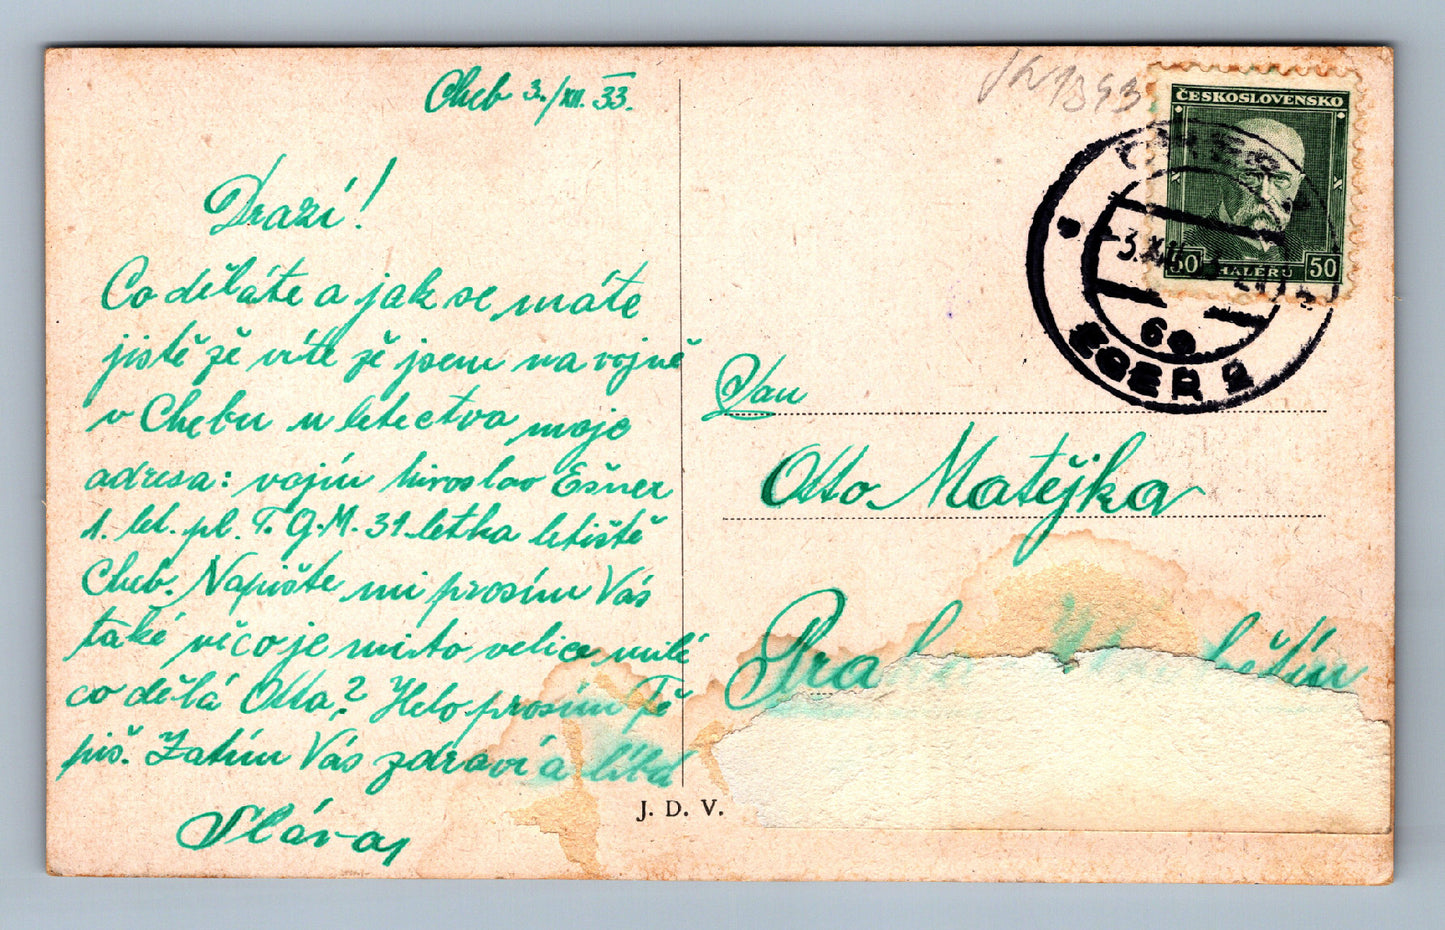 Cheb 3./XII. 33.
Drazí!
Co děláte a jak se máte
jistě že víte že jsem na vojně
v Chebu u letectva moje
adresa: vojín Miroslav Ešner
1. let. pl. T. G. M. 31. letka letiště
Cheb. Napište mi prosím Vás
také něco je mi to velice milé
co dělá Otta? Helo prosím Tě
piš. Zatím Vás zdraví a líbá
Sláva
J. D. V.
ČESKOSLOVENSKO
50 HALÉŘŮ 50
3.XII.
6a
EGER 2
Pan
Otto Matějka
Praha